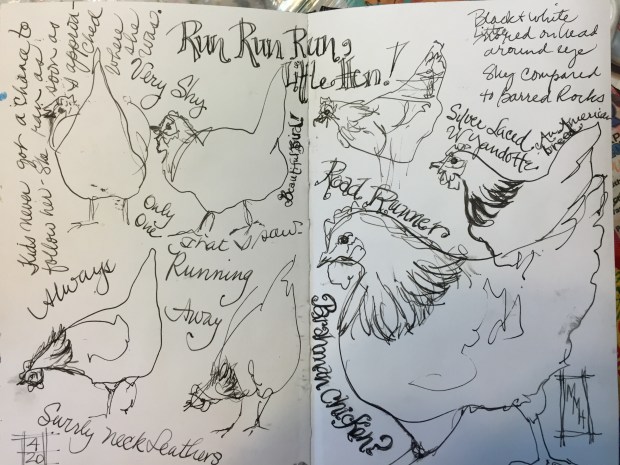 Kids never got a chance to
follow her. She ran as
soon as
I approa-
ched
where
she
was.
Very Shy
Run Run Run,
Little Hen!
Beautiful Bird!
Only
One
That I saw.
Always
Running
Away
Swirly Neck Feathers
4
20
Black + White
Little red on head
around eye
Shy compared
to Barred Rocks
Silver Laced
Wyandotte
An American
breed
Road Runner
Barhman Chicken?
NMH